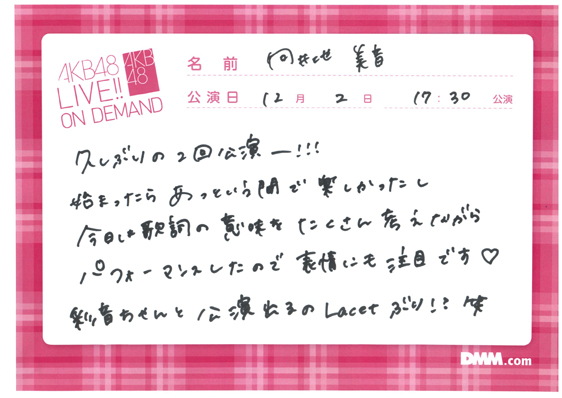 AKB48
LIVE!!
ON DEMAND
AKB
48
名 前 向井地 美音
公演日 12月 2日 17:30 公演
久しぶりの2回公演ー!!!
始まったら あっという間で 楽しかったし
今日は歌詞の意味をたくさん考えながら
パフォーマンスしたので 表情にも注目です♡
彩音ちゃんと 公演出るの Lacetぶり!? 笑
DMM.com